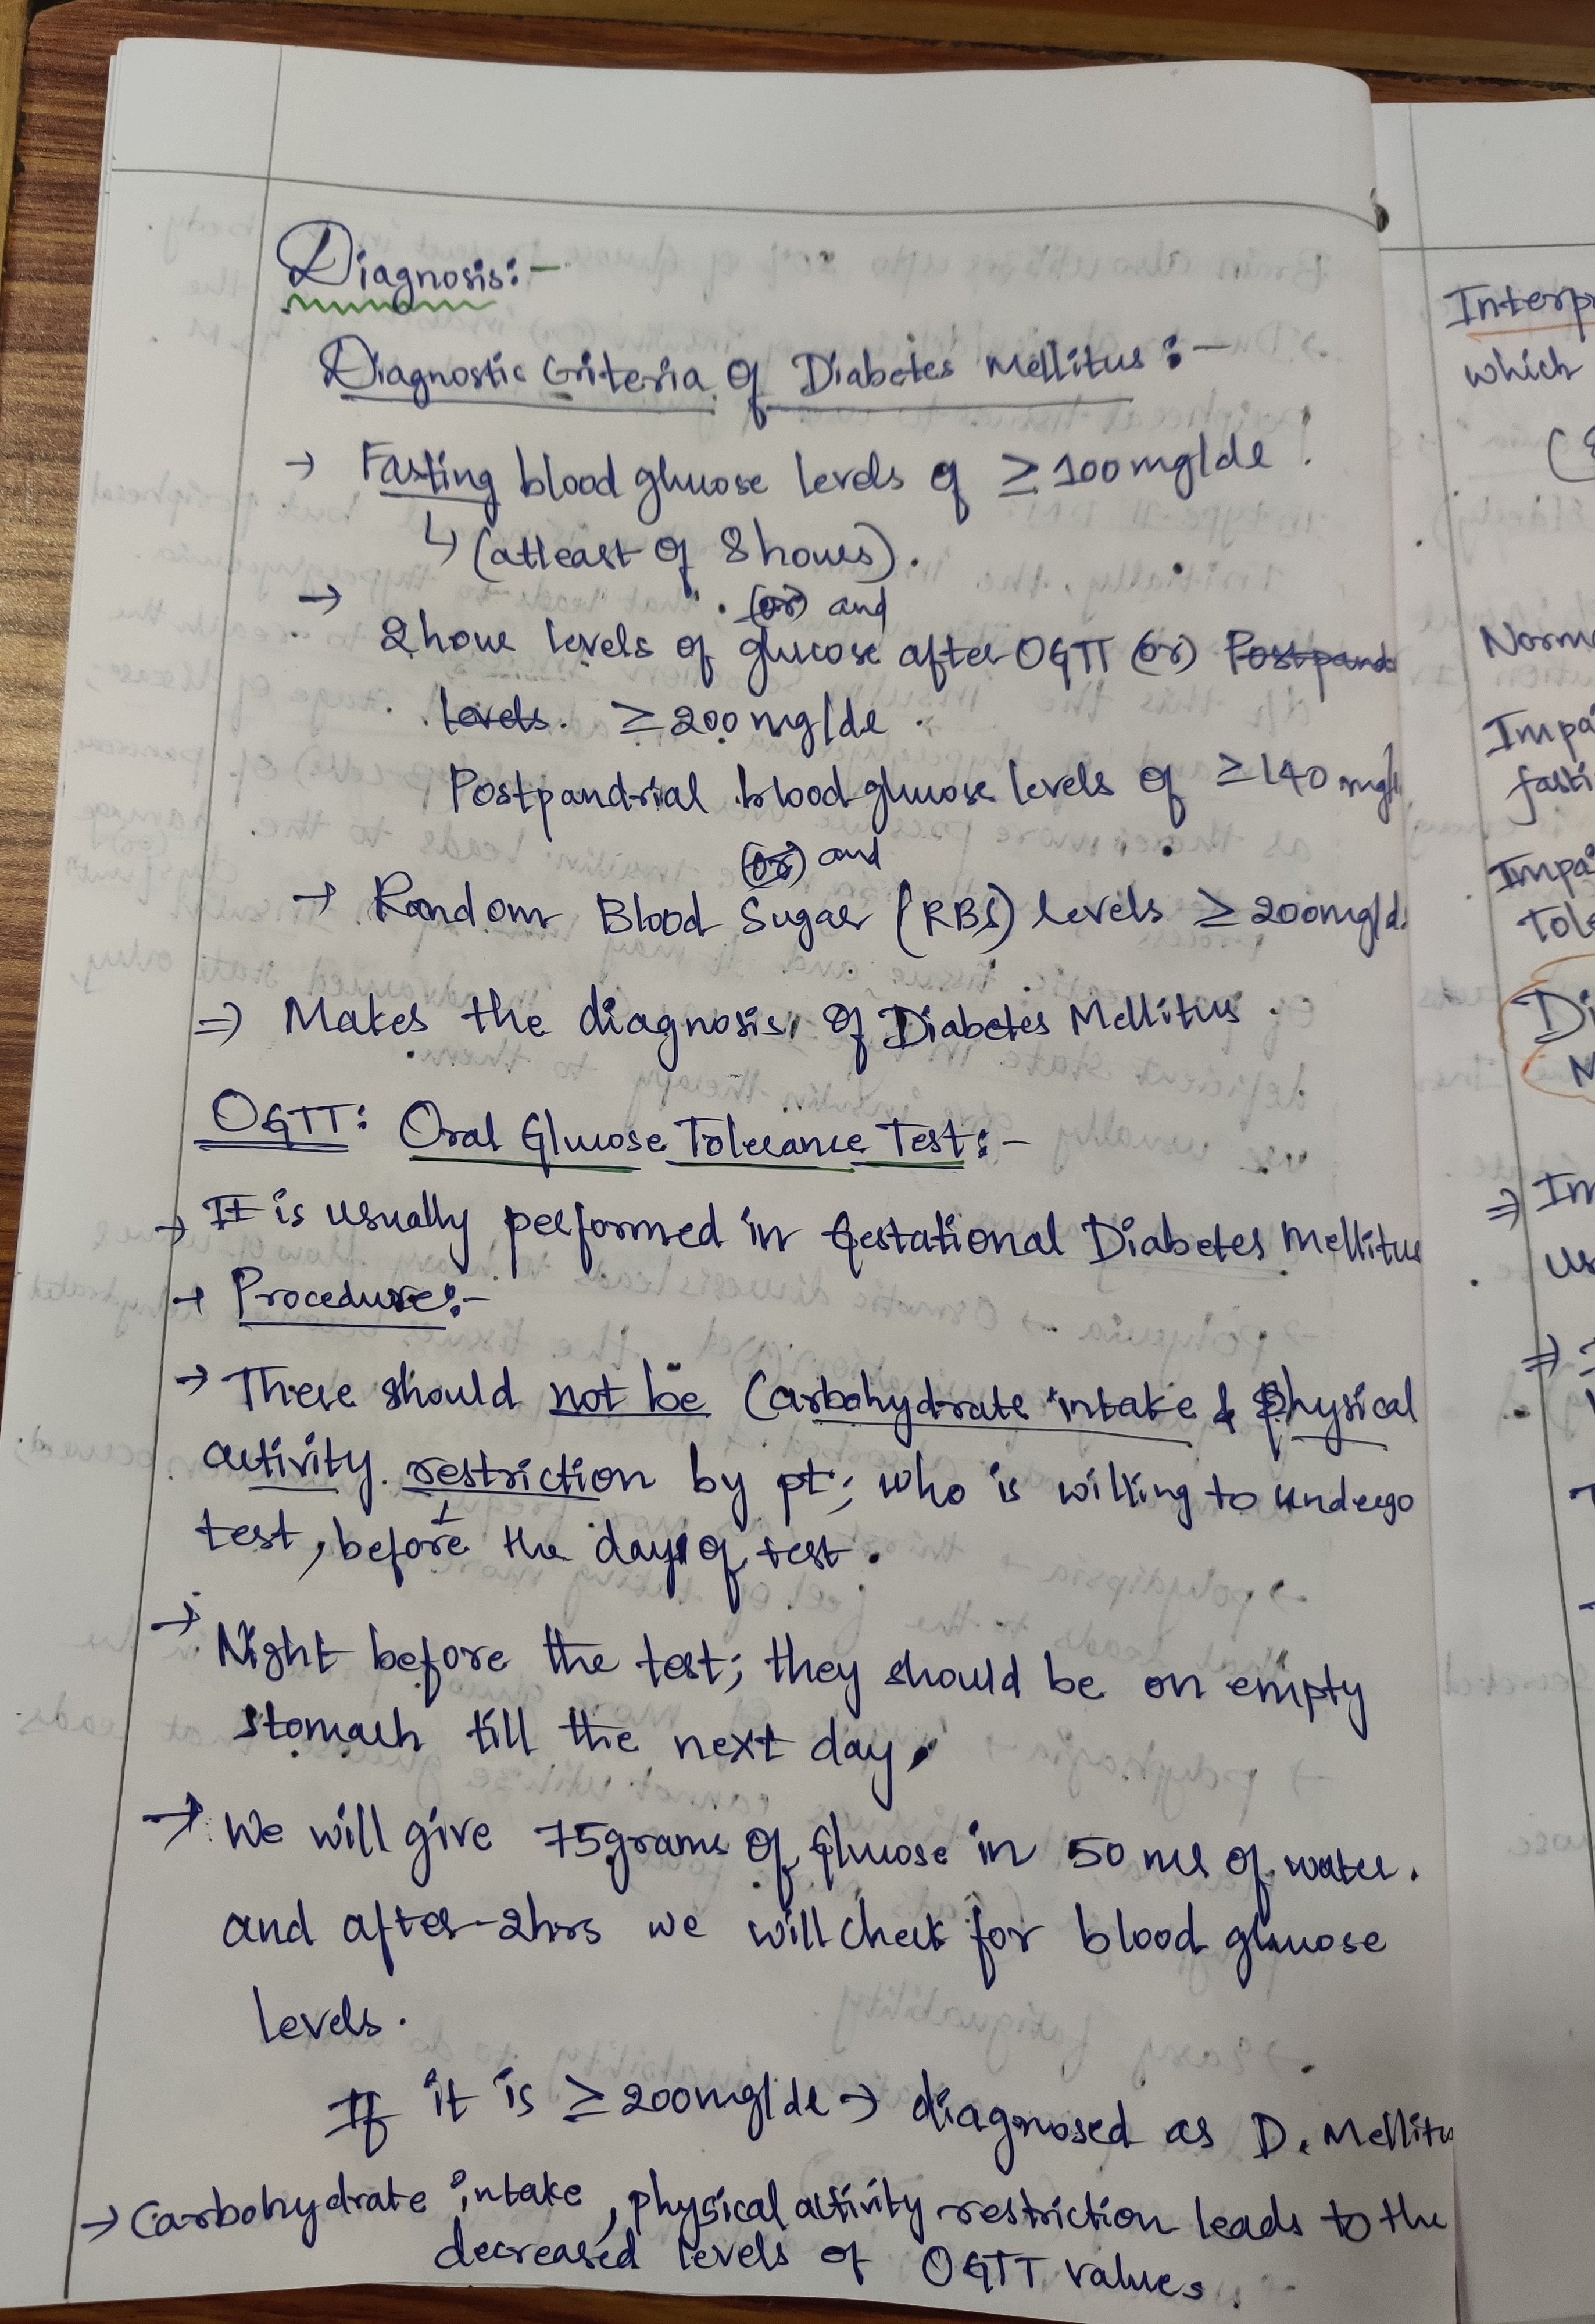 Diagnosis:-
Diagnostic Criteria of Diabetes Mellitus :-
→ Fasting blood glucose levels of ≥ 100mg/dl.
↳ (atleast of 8 hours).
(or) and
→ 2 hour levels of glucose after OGTT (or) Postpand
levels. ≥ 200 mg/dl.
Postpandrial blood glucose levels of ≥ 140 mg/
(or) and
→ Random Blood Sugar (RBS) levels ≥ 200mg/d
⇒ Makes the diagnosis of Diabetes Mellitus.
OGTT: Oral Glucose Tolerance Test:-
→ It is usually performed in Gestational Diabetes Mellitus
→ Procedure:-
→ There should not be Carbohydrate intake & physical
activity restriction by pt; who is willing to undergo
test, before the day of test.
→ Night before the test; they should be on empty
stomach till the next day.
→ We will give 75grams of glucose in 50 ml of water.
and after 2hrs we will check for blood glucose
levels.
If it is ≥ 200mg/dl → diagnosed as D. Mellitu
→ Carbohydrate intake, physical activity restriction leads to the
decreased levels of OGTT values.
Interp
which
Norm
Impa
fasti
Impa
Tole
Di
⇒ Im
us